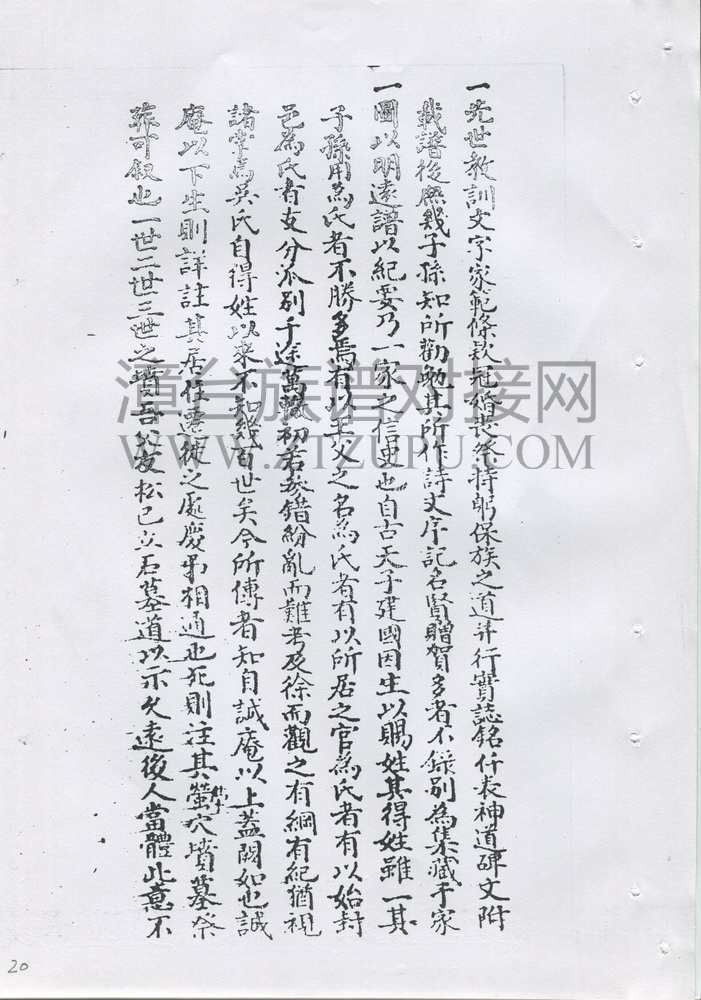 一先世教訓文字家範條款冠婚喪祭持躬保族之道并行實誌銘仟表神道碑文附
載譜後庶幾子孫知所勸勉其所作詩文序記名賢贈賀多者不錄別為集藏于家
一圖以明遠譜以紀要乃一家之信史也自古天子建國因生以賜姓其得姓雖一其
子孫用為氏者不勝多焉有以王父之名為氏者有以所居之官為氏者有以始封
邑為氏者支分派別千途萬轍初若棼錯紛亂而難考及徐而觀之有綱有紀猶視
諸掌焉吳氏自得姓以來不知幾百世矣今所傳者知自誠庵以上蓋闕如也誠
庵以下生則詳註其居住遷徙之處慶弔相通也死則注其塋穴墳墓祭
葬可叙也一世二世三世之墳吾父友松已立石墓道以示久遠後人當體此意不
漳台族谱对接网
WWW.ZTZUPU.COM
20